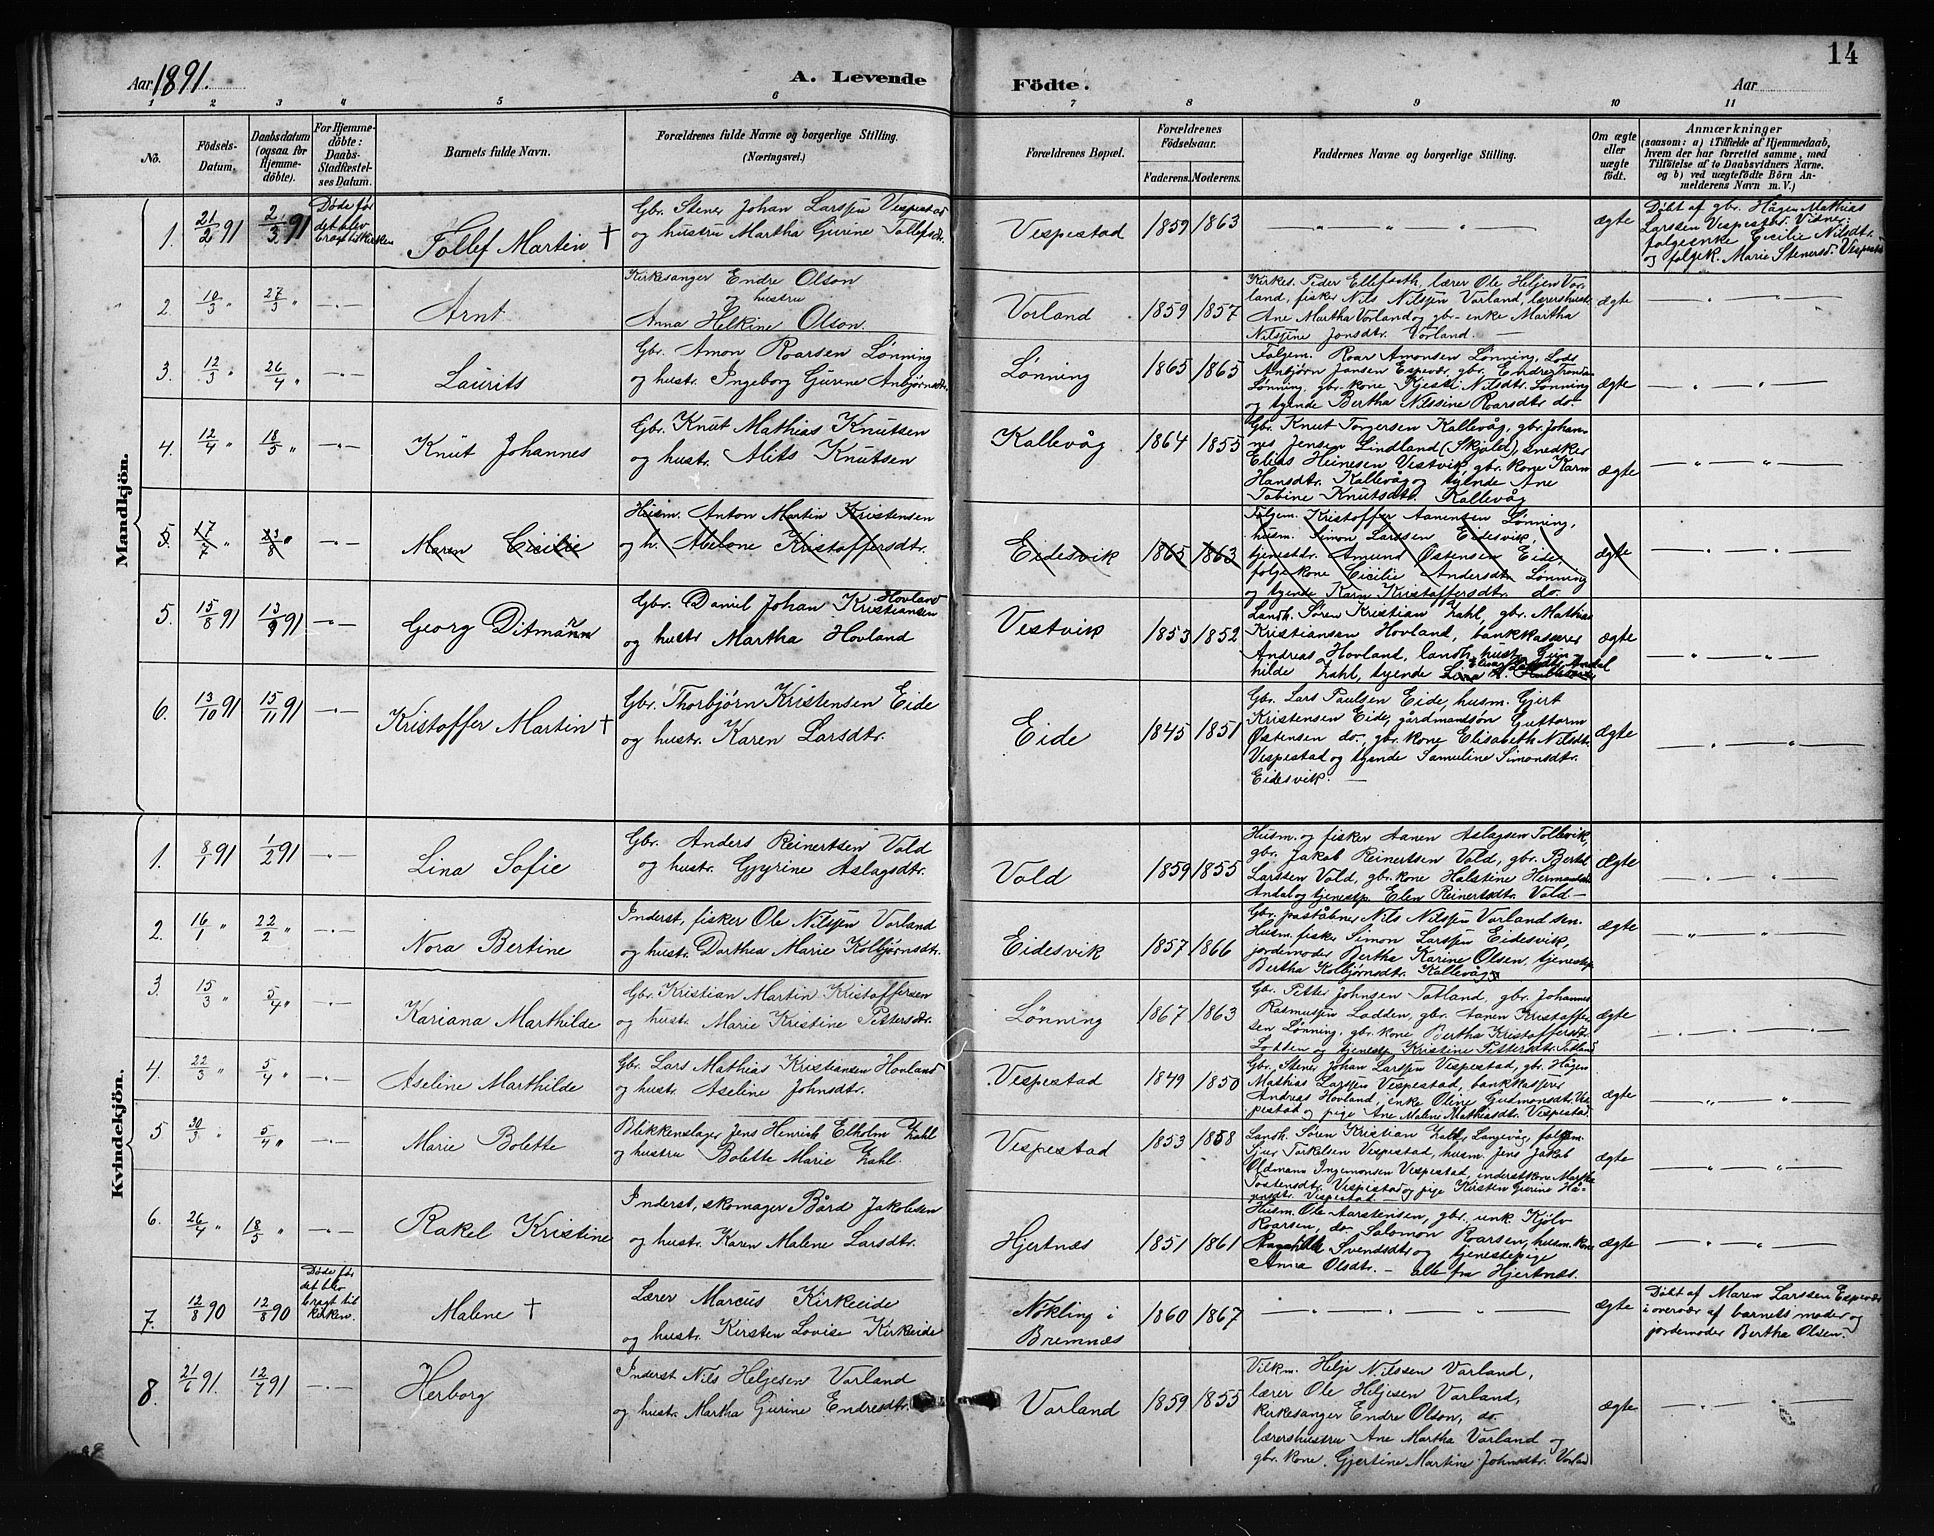 14
Aar 1891.
A. Levende Födte.
Aar
1 2 3 4 5 6 7 8 9 10 11
No.
Födsels-Datum.
Daabsdatum (ogsaa for Hjemmedöbte).
For Hjemmedöbte: Daabs-Stadfæstelses Datum.
Barnets fulde Navn.
Forældrenes fulde Navne og borgerlige Stilling. (Næringsvei.)
Forældrenes Bopæl.
Forældrenes Födselsaar.
Faderens. Moderens.
Faddernes Navne og borgerlige Stilling.
Om ægte eller uægte födt.
Anmærkninger
(saasom: a) i Tilfælde af Hjemmedaab, hvem der har forrettet samme, med Tilföielse af to Daabsvidners Navne. og b) ved uægtefödte Börn Anmelderens Navn m. V.)
Mandkjön.
1. 21/2 91 2/3 91 Døde før det blev bragt til kirken
Tollef Martin †
Gbr. Stener Johan Larssen Vespestad
og hustru Martha Gurine Tollefsdtr.
Vespestad 1859 1863 — „ — „ — ægte
Døbt af gbr. Hågen Mathias
Larssen Vespestad. Vidner:
folgeenke Cecilie Nilsdtr.
og folgek. Marie Stenersd. Vespestad
2. 10/3 „ 27/3 „ — „ —
Arnt
Kirkesanger Endre Olson
og hustru
Anna Helkine Olson.
Vorland 1859 1857
Kirkes. Peder Ellefseth, lærer Ole Heljesen Vorland,
fisker Nils Nilssen Vorland, lærershustr.
Ane Martha Vorland og gbr-enke Martha
Nilssine Jonsdtr. Vorland. —
ægte — „ — „ —
3. 12/3 „ 26/4 „ — „ —
Laurits
Gbr. Amon Roarsen Lønning
og hustr. Ingeborg Gurine Anbjørnsdtr.
Lønning 1865 1865
Folgem. Roar Amonsen Lønning, Lods
Anbjørn Jansen Espevær, gbr. Endre
Lønning, gbr. kone Kjersti Nilsdtr. Lønning
og tyende Bertha Nilssine Roarsdtr. do.
ægte — „ — „ —
4. 12/4 „ 18/5 „ — „ —
Knut Johannes
Gbr. Knut Mathias Knutsen
og hustr. Alits Knutsen
Kallevåg 1864 1855
Gbr. Knut Torgersen Kallevåg, gbr. Johannes
Jensen Lindland (Skjold), snedker
Elias Heinesen Vestvik, gbr. kone Karn
Hansdtr. Kallevåg og tyende Ane
Tobine Knutsdtr. Kallevåg
ægte — „ — „ —
5. 17/7 „ 23/8 „ — „ —
Maren Cicilie
Husm. Anton Martin Kristensen
og h. Abelone Kristoffersdtr.
Eidesvik 1865 1863
Folgem. Kristoffer Aanensen Lønning,
husm. Simon Larssen Eidesvik,
tjenestdr. Amund Østensen Eide,
folgekone Cicilie Andersdtr. Lønning
og tyende Karn Kristoffersdtr. do.
ægte — „ — „ —
5. 15/8 91 13/9 91 — „ —
Georg Ditmann
Gbr. Daniel Johan Kristiansen Hovland
og hustr Martha Hovland
Vestvik 1853 1852
Landh. Søren Kristian Zahl, gbr. Mathias
Kristiansen Hovland, bankkasserer
Andreas Hovland, landh. hustr. Gunhilde
Zahl, tyende
ægte — „ — „ —
6. 13/10 91 15/11 91 — „ —
Kristoffer Martin †
Gbr. Thorbjørn Kristensen Eide
og hustr. Karen Larsdtr.
Eide 1845 1851
Gbr. Lars Paulsen Eide, husm. Gjert
Kristensen Eide, gårdmandsøn Guttorm
Østensen do. gbr. kone Elisabeth Nilsdtr.
Vespestad og tyende Samuline Simonsdtr.
Eidesvik. —
ægte — „ — „ —
Kvindekjön.
1. 8/1 91 1/2 91 — „ —
Lina Sofie
Gbr. Anders Reinertsen Vold
og hustr. Gjyrine Aslagsdtr.
Vold 1859 1855
Husm. og fisker Aanen Aslagsen Tollevik,
gbr. Jakob Reinertsen Vold, gbr. Bertel
Larssen Vold, gbr. kone Halstine Hermundsdtr.
Andal og tjenestp. Elen Reinertsdtr. Vold —
ægte — „ — „ —
2. 16/1 „ 22/2 „ — „ —
Nora Bertine
Inderst, fisker Ole Nilssen Vorland
og hustr. Dorthea Marie Kolbjørnsdtr.
Eidesvik 1857 1866
Gbr. poståbner Nils Nilssen Vorland sen.
Husm. fisker Simon Larssen Eidesvik,
jordemoder Bertha Karine Olsen, tjenestep.
Bertha Kolbjørnsdtr. Kallevåg
ægte „ — „ —
3. 15/3 „ 5/4 „ — „ —
Kariana Marthilde
Gbr. Kristian Martin Kristoffersen
og hustr. Marie Kristine Pettersdtr.
Lønning 1867 1863
Gbr. Petter Johnsen Totland, gbr. Johannes
Rasmussen Lodden, gbr. Aanen Kristoffersen
Lønning, gbr. kone Bertha Kristoffersdtr.
Lodden og tjenestp. Kristine Pettersdtr. Totland
ægte — „ — „ —
4. 22/3 „ 5/4 „ — „ —
Aseline Marthilde
Gbr. Lars Mathias Kristiansen Hovland
og hustr. Aseline Johnsdtr.
Vespestad 1849 1850
Gbr. Stener Johan Larssen Vespestad, gbr. Hågen
Mathias Larssen Vespestad, bankkasserer
Andreas Hovland, enke Oline Gudmonsdtr. Vespestad
og pige Ane Malene Mathiasdtr. Vespestad.
ægte — „ — „ —
5 30/3 „ 5/4 „ — „ —
Marie Bolette
Blikkenslager Jens Henrich Elholm Zahl
og hustru Bolette Marie Zahl
Vespestad 1853 1858
Landh. Søren Kristian Zahl, Langevåg, folgem.
Sjur Torkelsen Vespestad, husm. Jens Jakob
Oldmann Ingemonsen Vespestad, inderstkone Martha
Tostensdtr. Vespestad og pige Kirsten Gurine Hågensdtr.
Vespestad —
ægte — „ — „ —
6. 26/4 „ 18/5 „ — „ —
Rakel Kristine
Inderst, skomager Bård Jakobsen
og hustr. Karen Malene Larsdtr.
Hjertnæs 1851 1861
Husm. Ole Aarstensen, gbr. unk. Kjølv
Roarsen, do Salomon Roarsen, husm. kone
Ragnilde Svendsdtr og tjenestepige
Anna Olsdtr. — alle fra Hjertnæs.
ægte — „ — „ —
7. 12/8 90 12/8 90 Døde før det blev bragt til kirken.
Malene †
Lærer Marcus Kirkeeide
og hustr. Kirsten Lovise Kirkeeide
Nøkling i Bremnæs 1860 1867 — „ — „ — ægte
Døbt af Maren Larssen Espevær
i overvær af barnets moder og
jordemoder Bertha Olsen.
8 21/6 91. 12/7 91 — „ —
Herborg
Inderst Nils Heljesen Vorland
og hustr. Martha Gurine Endresdtr.
Vorland 1859 1855
Vilkm. Helje Nilssen Vorland,
lærer Ole Heljesen Vorland,
kirkesanger Endre Olson, do.
lærershustru Ane Martha Vorland og
gbr. kone. Gjertine Martine Johnsdtr. Vorland
ægte — „ — „ —